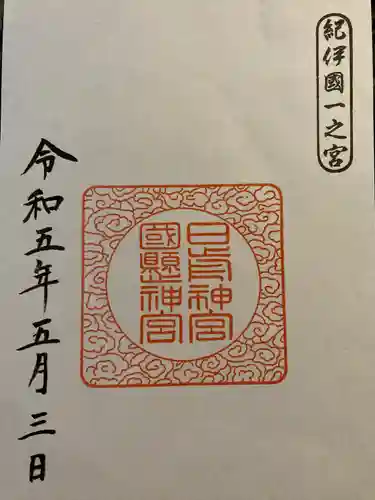 紀伊國一之宮
日前神宮
國懸神宮
令和五年五月三日